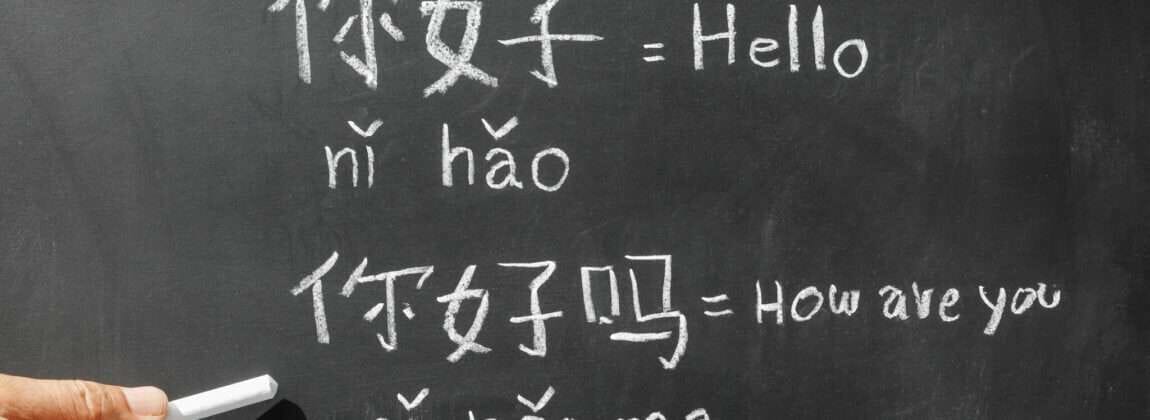 你好 = Hello
nǐ hǎo
你好吗 = How are you
nǐ hǎo